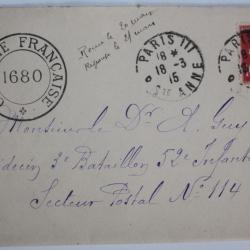 E FRANÇAISE
1680
Reçu le 20 mars
Réponse le 21 mars
PARIS III
18 -3
15
STE ANNE
Monsieur le Dr A. Guy
édecin 3e Bataillon 52e Infant
Secteur Postal No 114